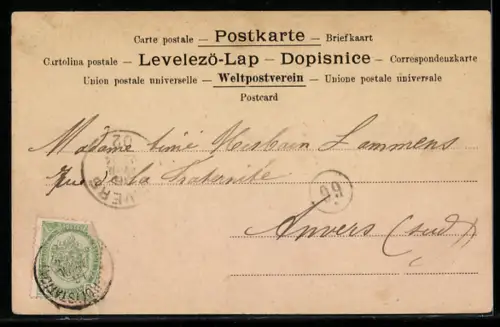 Carte postale — Postkarte — Briefkaart
Cartolina postale — Levelezö-Lap — Dopisnice — Correspondenzkarte
Union postale universelle — Weltpostverein — Unione postale universale
Postcard
Madame Aimé Lammens
Rue de la Fraternité
60
Anvers (Sud)